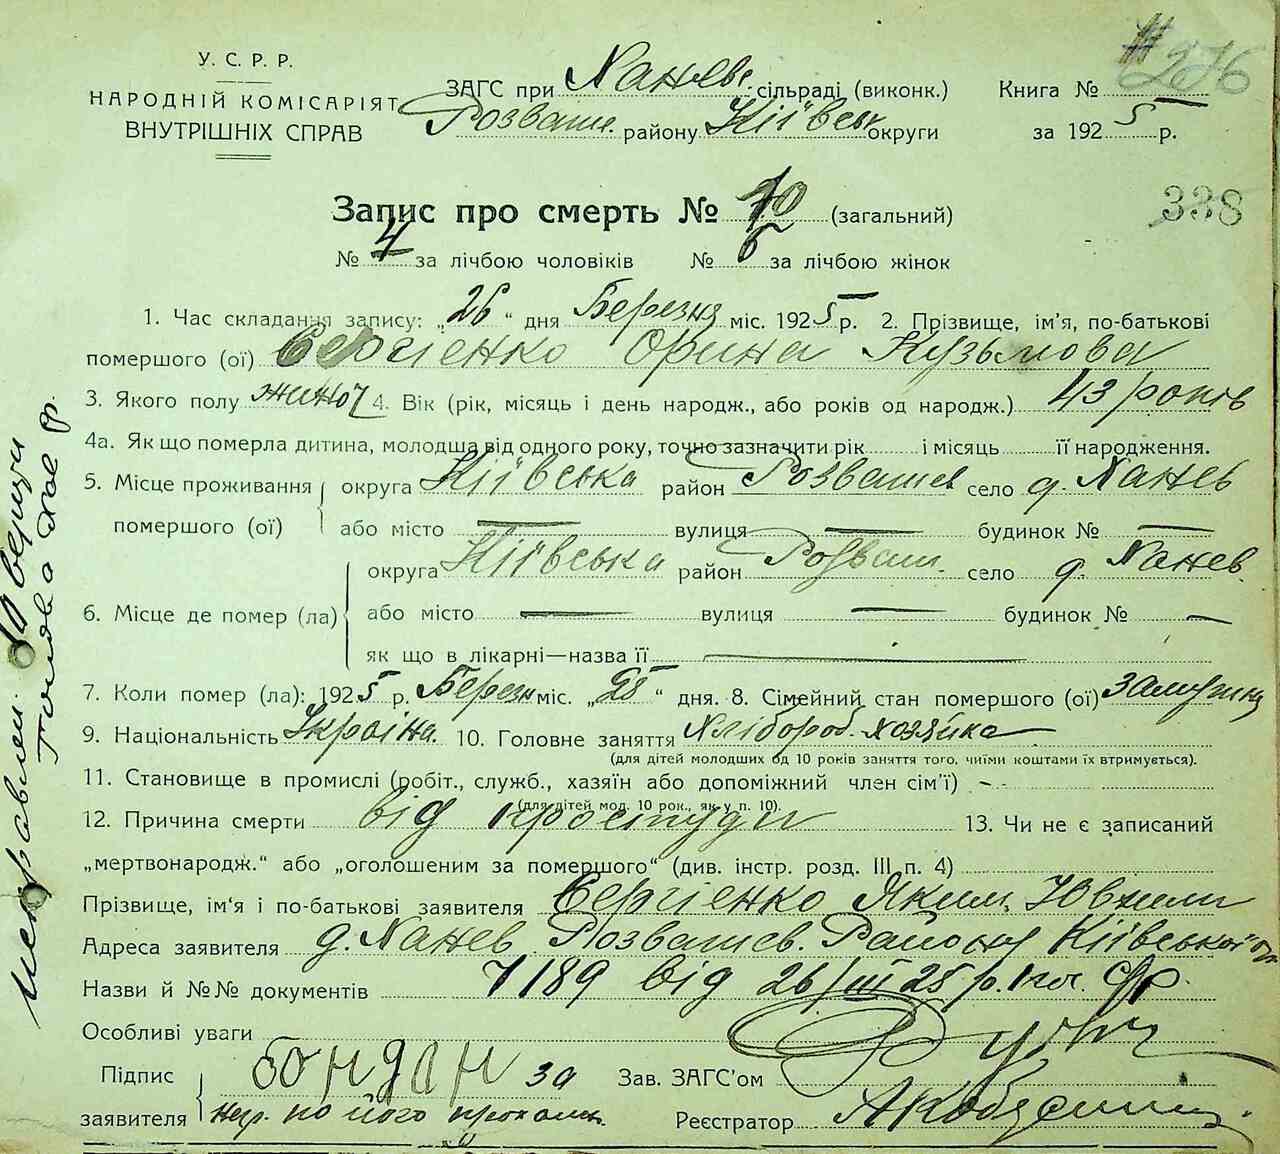 У. С. Р. Р.
НАРОДНІЙ КОМІСАРІЯТ
ВНУТРІШНІХ СПРАВ
ЗАГС при Ханевс. сільраді (виконк.)
Розваш. району Київськ округи
Книга №
за 1925 р.
276
338
Запис про смерть № 10 (загальний)
№ 4 за лічбою чоловіків № 6 за лічбою жінок
1. Час складання запису: „26“ дня Березня міс. 1925 р. 2. Прізвище, ім’я, по-батькові
помершого (ої) Сергієнко Орина Кузьмова
3. Якого полу жиноч 4. Вік (рік, місяць і день народж., або років од народж.) 43 років
4а. Як що померла дитина, молодша від одного року, точно зазначити рік і місяць її народження.
5. Місце проживання помершого (ої) округа Київська район Розвашев село д. Ханев
або місто — вулиця — будинок № —
6. Місце де помер (ла) округа Київська район Розваш. село д. Ханев.
або місто — вулиця — будинок № —
як що в лікарні—назва її —
7. Коли помер (ла): 1925 р. Березн міс. „25“ дня. 8. Сімейний стан помершого (ої) замужня
9. Національність Україна. 10. Головне заняття Хлібороб. хозяйка
(для дітей молодших од 10 років заняття того, чиїми коштами їх втримується).
11. Становище в промислі (робіт., служб., хазяїн або допоміжний член сім’ї) -
(для дітей мол. 10 рок., як у п. 10).
12. Причина смерти від простуди 13. Чи не є записаний
„мертвонародж.“ або „оголошеним за помершого“ (див. інстр. розд. III п. 4)
Прізвище, ім’я і по-батькові заявителя Сергієнко Яким
Адреса заявителя д. Ханев Розвашев. Району Київської о
Назви й №№ документів 7189 від 26/III 25 р.
Особливі уваги
Підпис заявителя Бондар за
нар. по його прохань.
Зав. ЗАГС’ом
Реєстратор
Голова